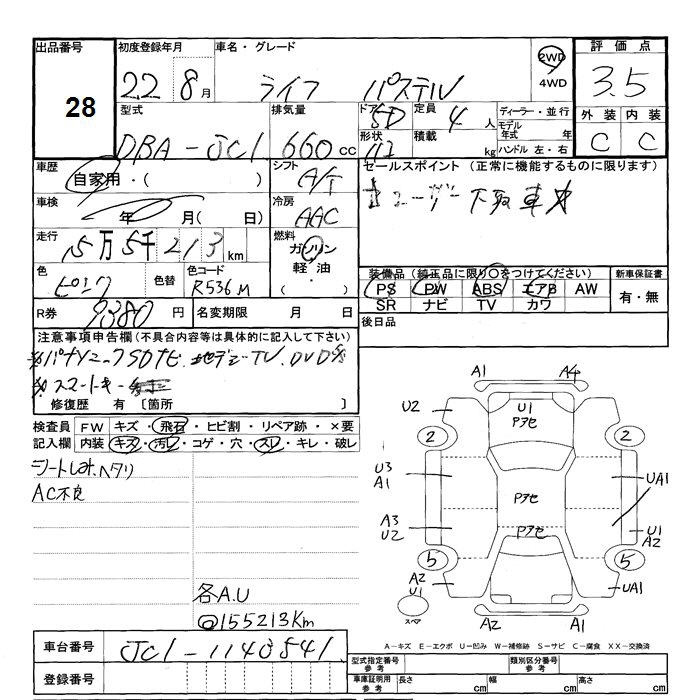 出品番号
28
初度登録年月
22 8月
車名・グレード
ライフ パステル
2WD
4WD
評価点
3.5
外装 内装
C C
型式
DBA-JC1
排気量
660cc
ドア 5D
形状
定員 4人
積載 kg
ディーラー・並行
モデル年式 年
ハンドル 左・右
車歴
自家用・( )
シフト
A/T
車検
年 月( 日)
冷房
AAC
セールスポイント (正常に機能するものに限ります)
ユーザー下取車
走行
15万5千213km
燃料
ガソリン
軽油
・( )
色
ピンク
色替
色コード
R536M
装備品(純正品に限り○をつけてください)
PS PW ABS エアB AW
SR ナビ TV カワ
新車保証書
有・無
R券
9380円
名変期限 月 日
後日品
注意事項申告欄(不具合内容等は具体的に記入して下さい)
パナソニックSDナビ 地デジTV. DVD
スマートキー
修復歴 有 [箇所 ]
検査員 FW キズ・飛石・ヒビ割・リペア跡・×要
記入欄 内装 キズ・汚レ・コゲ・穴・スレ・キレ・破レ
シートしみ.ヘタリ
AC不良
各A.U
@155213Km
A1 A4
U2
U1
Pアセ
2 2
U3
A1
UA1
Pアセ
A3
U2
Pアセ
U1
A2
5 5
A2
U1
UA1
スペア
A2 A1
A-キズ E-エクボ U-凹み W-補修跡 S-サビ C-腐食 XX-交換済
車台番号
JC1-1140841
登録番号
型式指定番号 参考
類別区分番号 参考
車庫証明用 参考
長さ cm 幅 cm 高さ cm